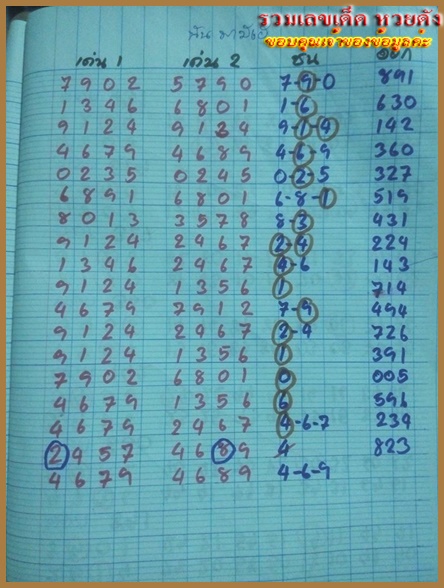 รวมเลขเด็ด หวยดัง
ขอบคุณเจ้าของข้อมูลค่ะ
เด่น 1 เด่น 2 ชน ออก
7902 5790 7-9-0 891
1346 6801 1-6 630
9124 9134 9-1-4 142
4679 4689 4-6-9 360
0235 0245 0-2-5 327
6891 6801 6-8-1 519
8013 3578 8-3 431
9124 2467 2-4 224
1346 2467 4-6 143
9124 1356 1 714
4679 7912 7-9 494
9124 2467 2-4 726
9124 1356 1 391
7902 6801 0 005
4679 1356 6 596
4679 2467 4-6-7 234
2457 4689 4 823
4679 4689 4-6-9